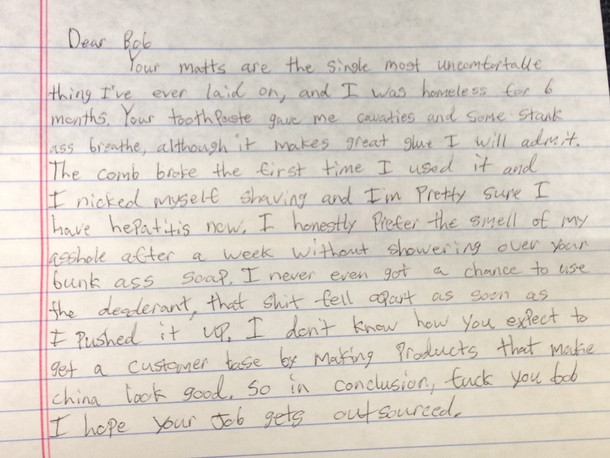 Dear Bob
Your matts are the single most uncomfortable
thing I've ever laid on, and I was homeless for 6
months. Your toothpaste gave me cavaties and some stank
ass breathe, although it makes great glue I will admit.
The comb broke the first time I used it and
I nicked myself shaving and I'm pretty sure I
have hepatitis now. I honestly prefer the smell of my
asshole after a week without showering over your
bunk ass soap. I never even got a chance to use
the deoderant, that shit fell apart as soon as
I pushed it up. I don't know how you expect to
get a customer base by making products that make
china look good. So in conclusion, fuck you bob
I hope your job gets outsourced.